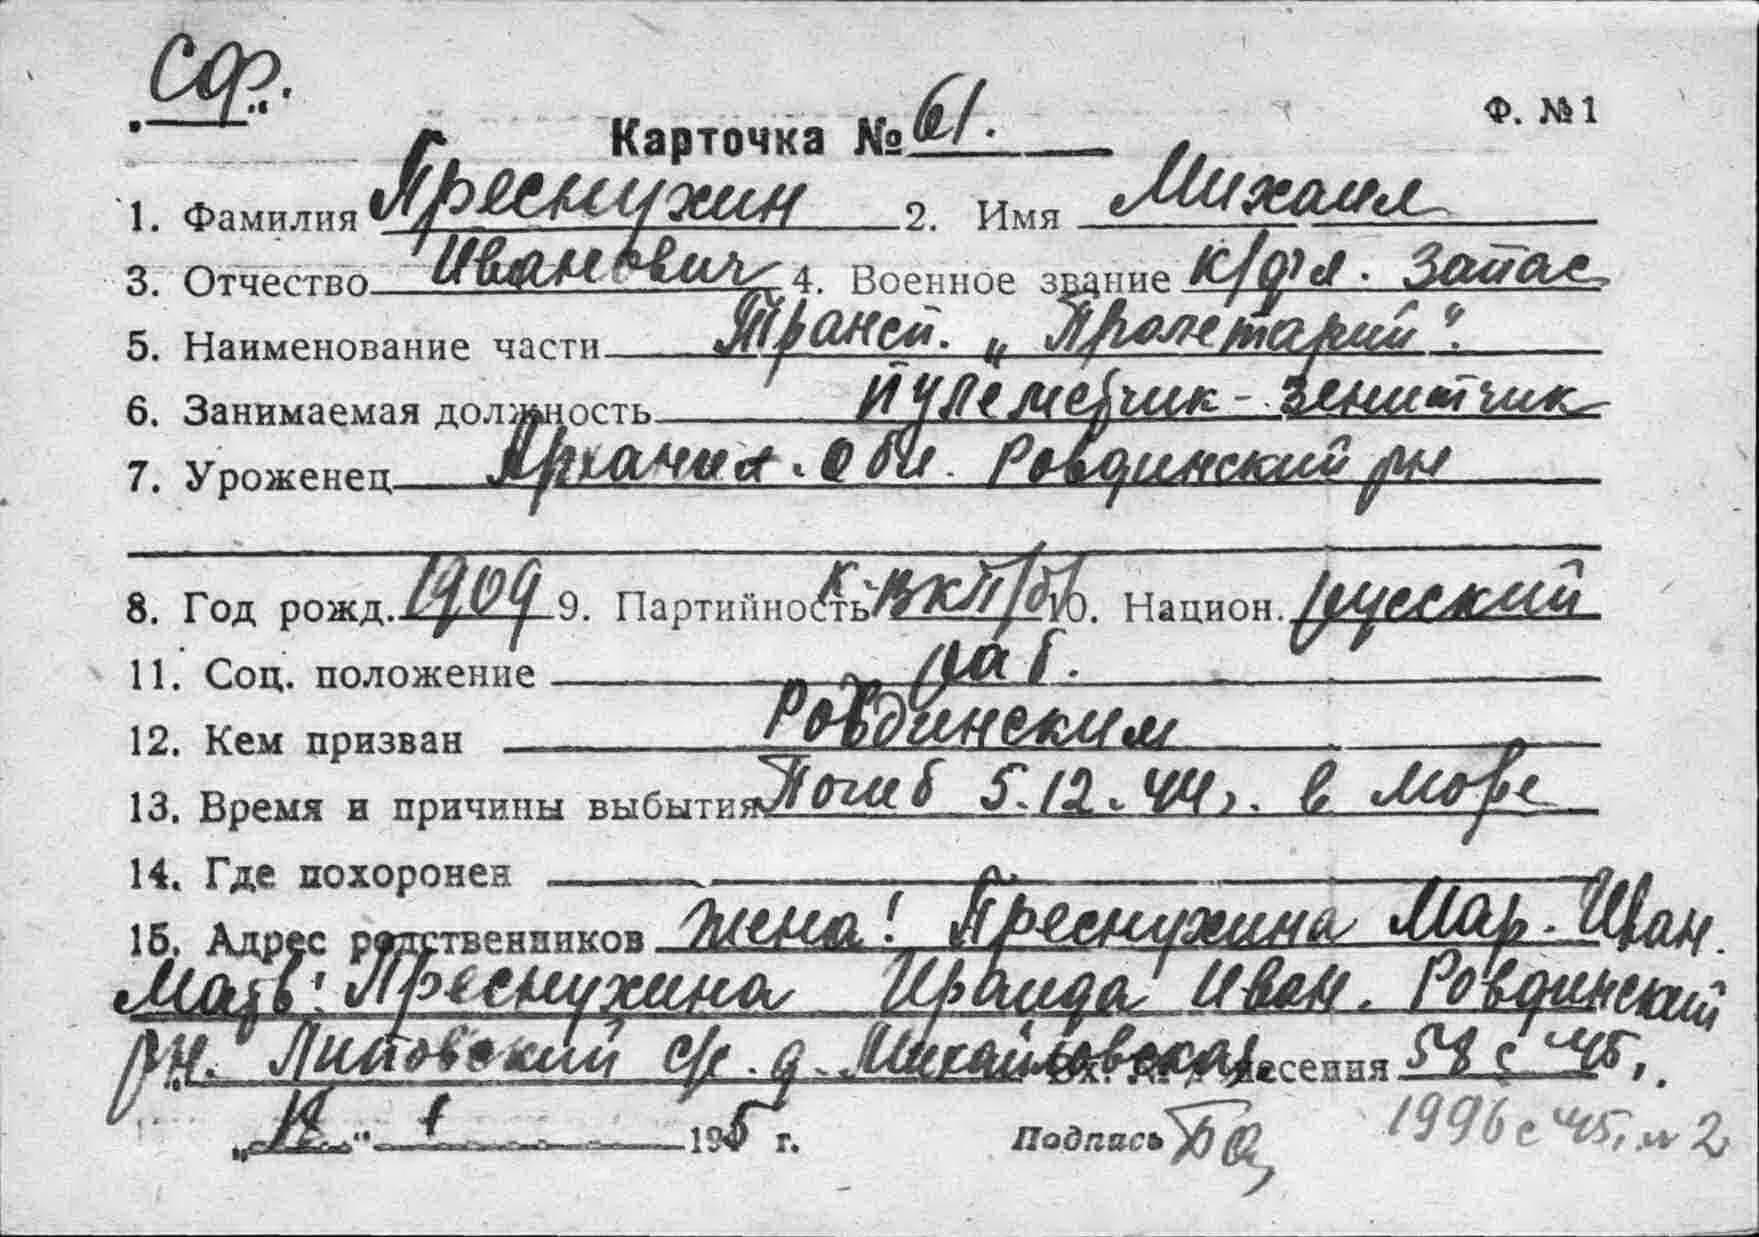 СФ.
Ф. №1
Карточка № 61.
1. Фамилия Преснухин 2. Имя Михаил
3. Отчество Иванович 4. Военное звание к/фл. запас
5. Наименование части Трансп. „Пролетарий".
6. Занимаемая должность пулеметчик-зенитчик
7. Уроженец Обл. Ровдинский рн
8. Год рожд. 1909 9. Партийность к. ВКП/б/ 10. Национ. русский
11. Соц. положение раб.
12. Кем призван Ровдинским
13. Время и причины выбытия Погиб 5.12.44г. в море
14. Где похоронен
15. Адрес родственников жена: Преснухина Мар. Иван.
Мать: Преснухина Ираида Иван. Ровдинский
рн. Липовский с/с. д. Михайловская. донесения 58 с 45г.
195 г. Подпись 1996 с 45г.